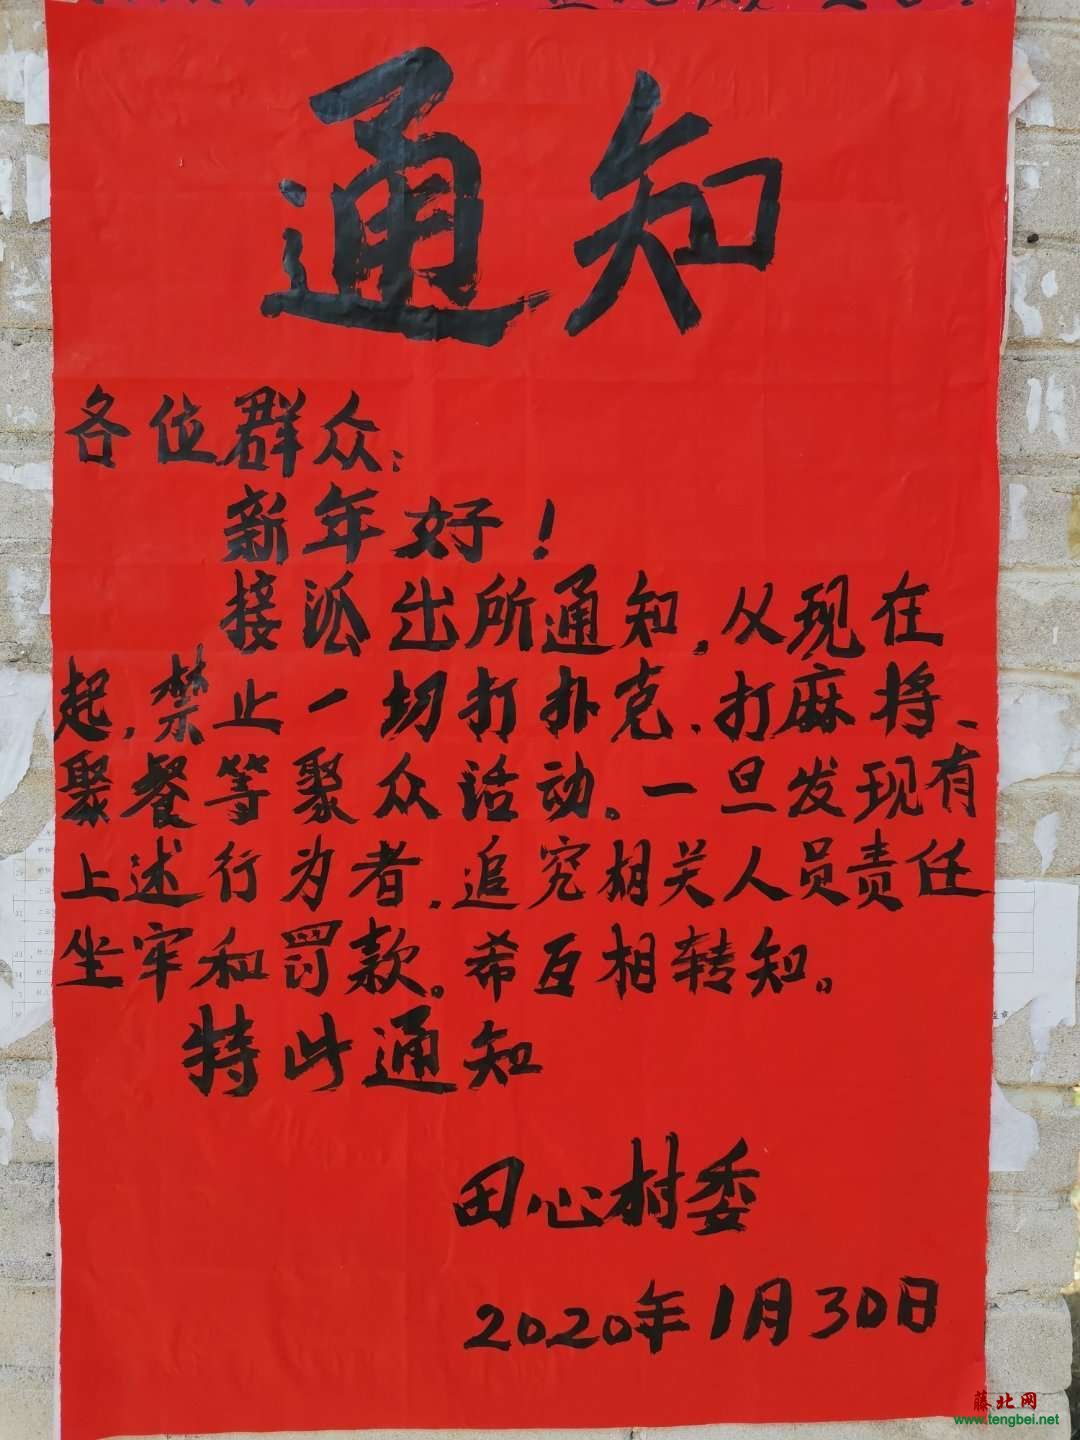 通知
各位群众：
新年好！
接派出所通知，从现在
起，禁止一切打扑克、打麻将、
聚餐等聚众活动。一旦发现有
上述行为者，追究相关人员责任
坐牢和罚款。希互相转知。
特此通知
田心村委
2020年1月30日
藤北网
www.tengbei.net